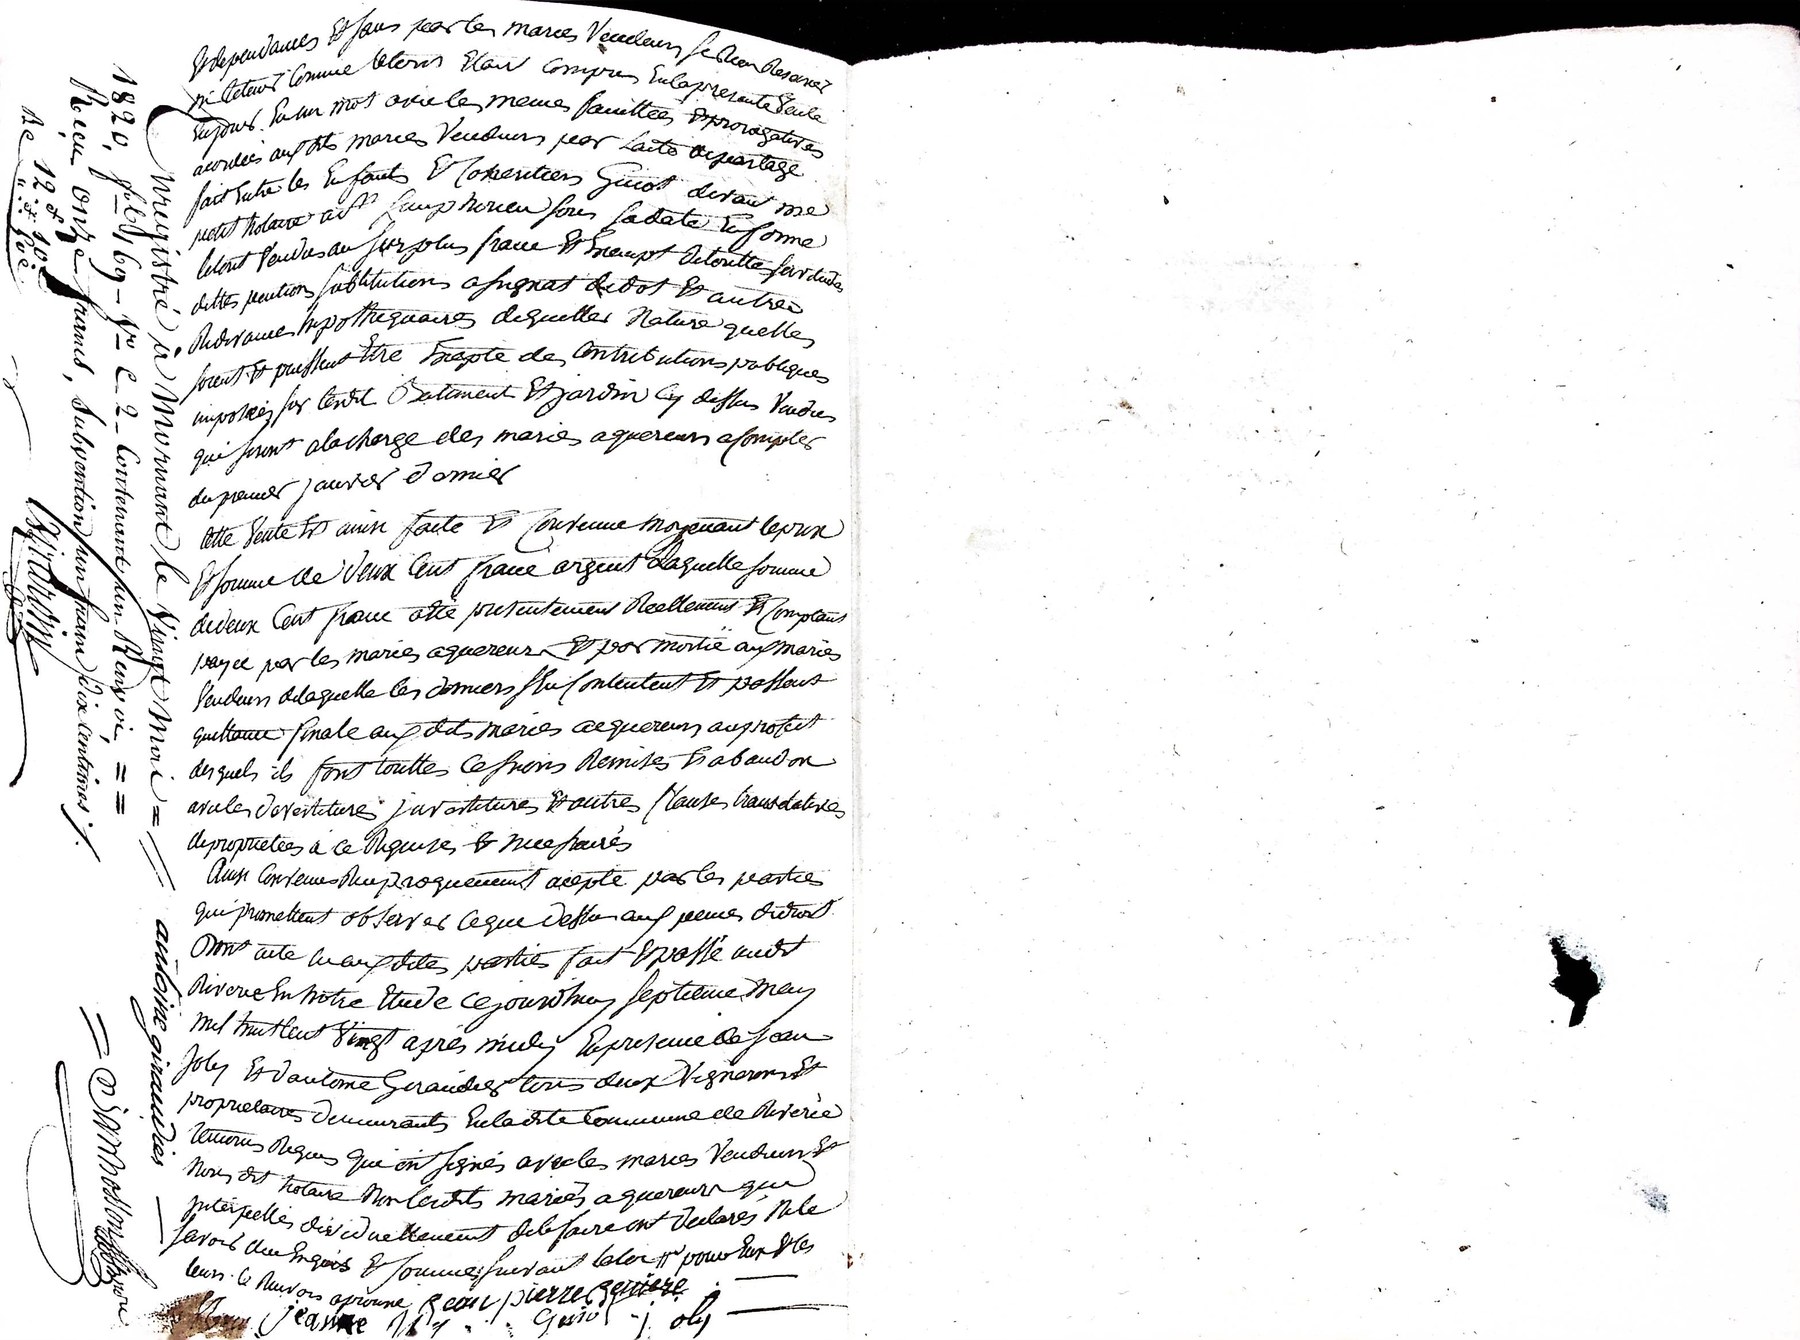 Et dependances Et sans par les mariés Vendeurs se Rien Reserver
ni Retenir Comme letout Etant compris En la presente Vente
En un mot avec les memes facultées Et prerogatives
acordées aux dits mariés Vendeurs par Lacte departage
fait Entre les Enfants Et Coheritiers Guiot devant me
petit Notaire a St Simphorien sous sa date En forme
letout Vendu au surplus franc Et Exempt de touttes servitudes
dettes pentions substitutions asignat de dot Et autres
Redevances hypothequaires dequelles Nature quelles
soient Et puissent Etre Exepte des Contributions publiques
imposées sur ledit Batiment Et jardin Cy dessus Vendus
qui seront alacharge des mariés aquereurs a Compter
du premier janvier dernier
Cette Vente Est ainsi faite Et Convenue moyenant leprix
Et somme de Deux Cent franc argent Laquelle somme
dedeux Cent franc a été presentement Reellement Et Comptant
payée par les mariés aquereurs Et par moitié aux mariés
Vendeurs delaquelle les derniers s'En Contentent Et passent
quittance finale aux dits mariés acquereurs au profit
desquels ils font touttes Cessions Remises Et abandon
avec les devestitures jnvestitures Et autres Clauses translatives
de proprietées a ce Requises Et necessaires
Ainsi Convenu Reciproquement acepté par les parties
qui promettent observer ceque dessus aux peines dedroit
Dont acte lu auxdites parties fait Et passé audit
Riverie En Notre Etude Cejourdhuy septieme May
mil huit Cent Vingt après midy En presence de Jean
Joly Et d'antoine Giraudier tous deux Vignerons Et
proprietaires Demeurants En ladite Commune de Riverie
temoins Requis qui ont signés avec les mariés Vendeurs Et
Nous dit Notaire Non lesdits mariés aquereurs que
jnterpellés dividuellement dele faire ont Declarés Nele
savoir de ce Enquis Et sommés suivant laloi pour Eux Et les
leurs le Renvois aprouvé Jean pierre
jeanne Guiot j. oly
Enregistré à Mornant le Vingt Mai =
1820, f° 169 - V° C 2 - Contenant un Renvoi, = =
Reçu onze francs, subvention un franc dix centimes ./.
De 12 et 10
antoine giraudier